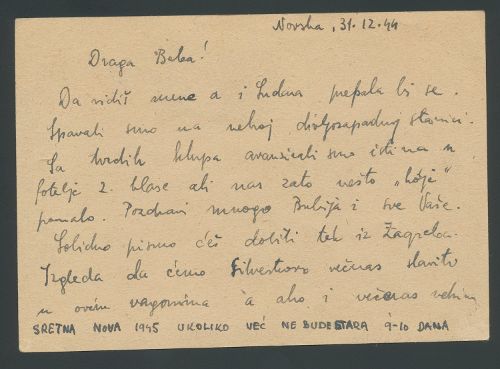 Novska, 31.12.44
Draga Beba!
Da vidiš mene a i Ludma prepala bi se.
Spavali smo na nekoj divljozapadnoj stanici.
Sa tvrdih klupa avanzirali smo istina u
fotelje 2. klase ali nas zato nešto „kolje"
pomalo. Pozdravi mnogo Bubija i sve Vaše.
Solidno pismo ćeš dobiti tek iz Zagreba.
Izgleda da ćemo Silvestrovo večeras slaviti
u ovim vagonima a ako i večeras
SRETNA NOVA 1945 UKOLIKO VEĆ NE BUDE STARA 9-10 DANA